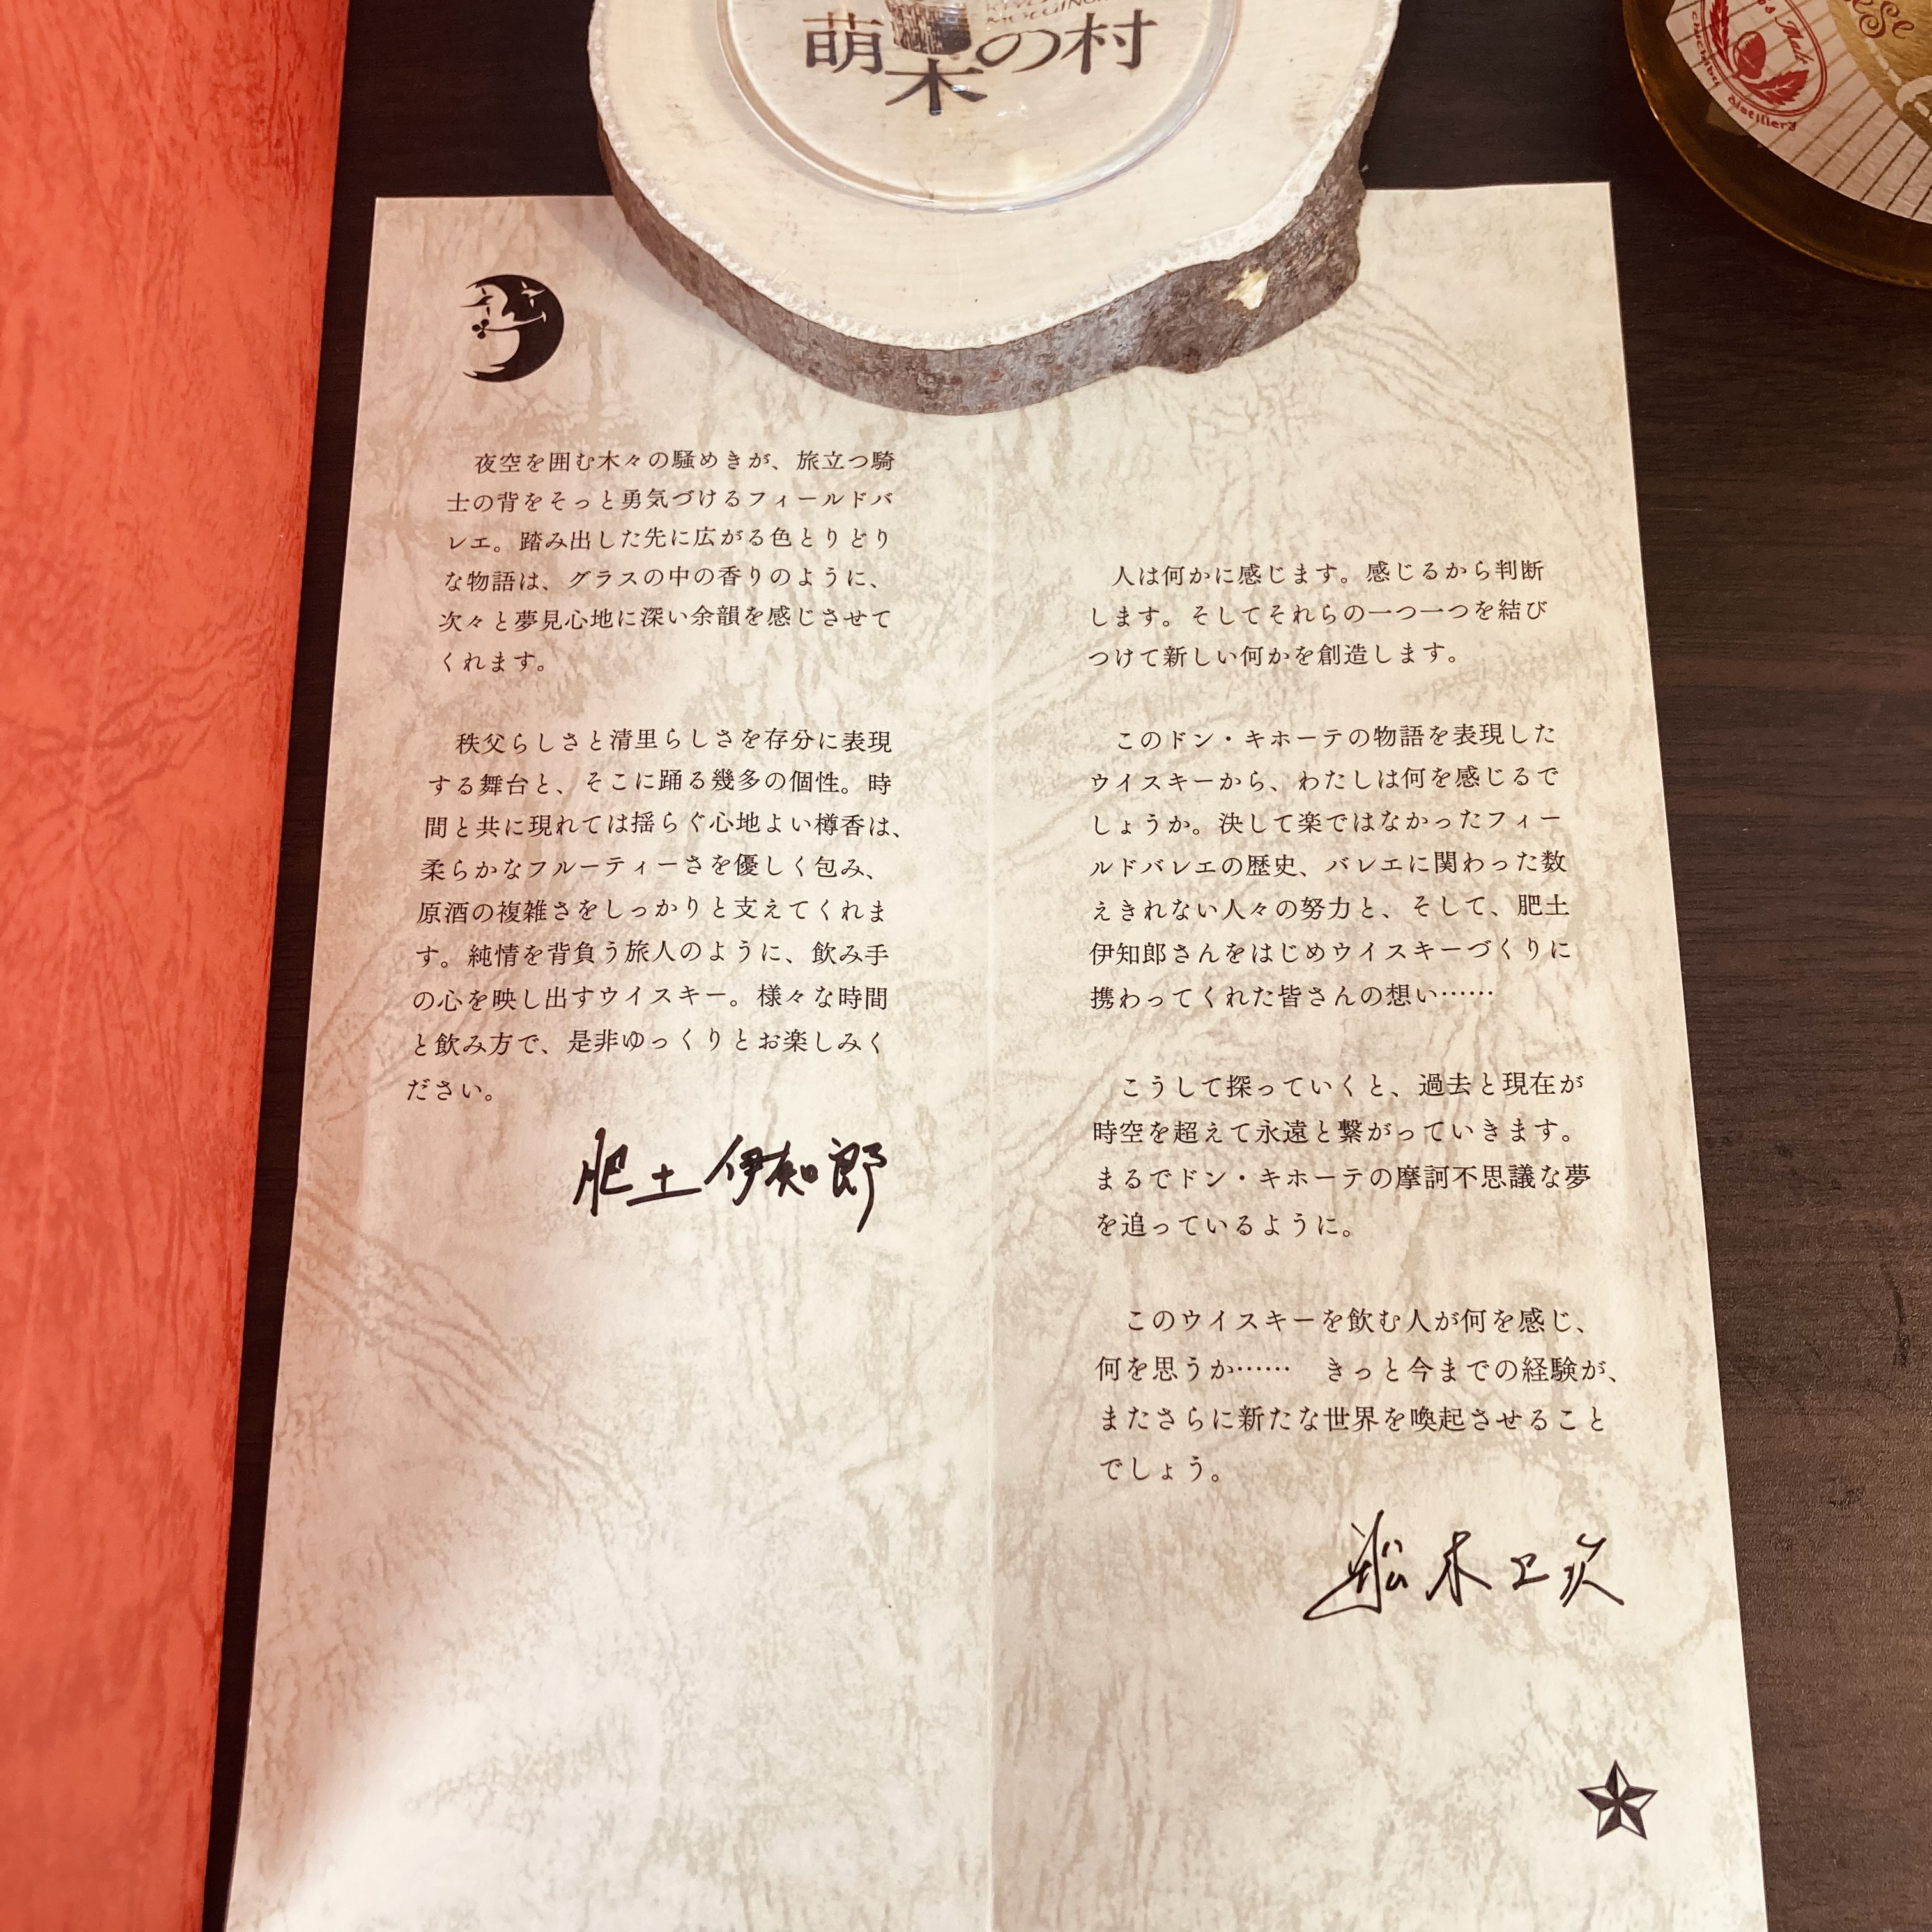 萌木の村
distillery
夜空を囲む木々の騒めきが、旅立つ騎
士の背をそっと勇気づけるフィールドバ
レエ。踏み出した先に広がる色とりどり
な物語は、グラスの中の香りのように、
次々と夢見心地に深い余韻を感じさせて
くれます。
秩父らしさと清里らしさを存分に表現
する舞台と、そこに踊る幾多の個性。時
間と共に現れては揺らぐ心地よい樽香は、
柔らかなフルーティーさを優しく包み、
原酒の複雑さをしっかりと支えてくれま
す。純情を背負う旅人のように、飲み手
の心を映し出すウイスキー。様々な時間
と飲み方で、是非ゆっくりとお楽しみく
ださい。
肥土伊知郎
人は何かに感じます。感じるから判断
します。そしてそれらの一つ一つを結び
つけて新しい何かを創造します。
このドン・キホーテの物語を表現した
ウイスキーから、わたしは何を感じるで
しょうか。決して楽ではなかったフィー
ルドバレエの歴史、バレエに関わった数
えきれない人々の努力と、そして、肥土
伊知郎さんをはじめウイスキーづくりに
携わってくれた皆さんの想い……
こうして探っていくと、過去と現在が
時空を超えて永遠と繋がっていきます。
まるでドン・キホーテの摩訶不思議な夢
を追っているように。
このウイスキーを飲む人が何を感じ、
何を思うか……　きっと今までの経験が、
またさらに新たな世界を喚起させること
でしょう。
舩木上次